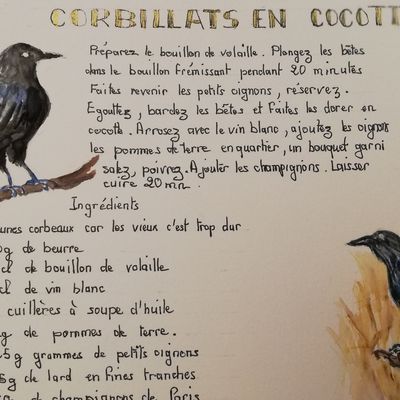 CORBILLATS EN COCOTT
Préparez le bouillon de volaille. Plongez les bêtes
dans le bouillon frémissant pendant 20 minutes
Faites revenir les petits oignons, réservez.
Egouttez, bardez les bêtes et faites les dorer en
cocotte. Arrosez avec le vin blanc, ajoutez les oignons
les pommes de terre en quartier, un bouquet garni
salez, poivrez. Ajouter les champignons. Laisser
cuire 20 mn.
Ingrédients
unes corbeaux car les vieux c'est trop dur
g de beurre
cl de bouillon de volaille
cl de vin blanc
cuillères à soupe d'huile
g de pommes de terre.
5g grammes de petits oignons
5g de lard en fines tranches
de champignons de Paris